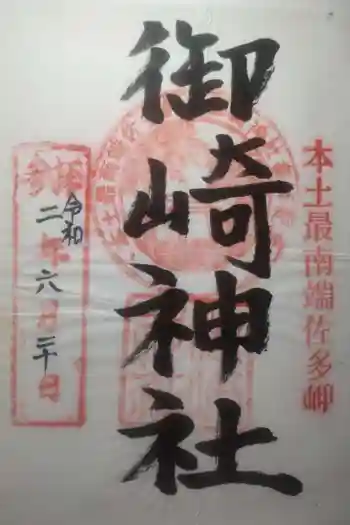 本土最南端佐多岬
御崎神社
参拝
令和
二年六月二十日